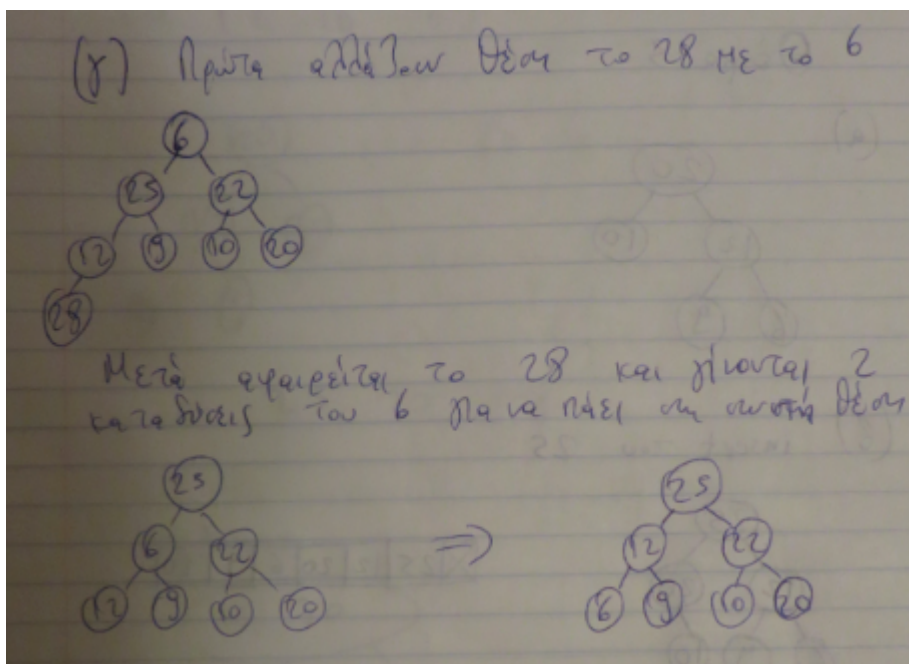 (γ) Πρώτα αλλάζουν θέση το 28 με το 6
6
25 22
12 9 10 20
28
Μετά αφαιρείται το 28 και γίνονται 2
καταδύσεις του 6 για να πάει στη σωστή θέση
25 25
6 22 ⇒ 12 22
12 9 10 20 6 9 10 20